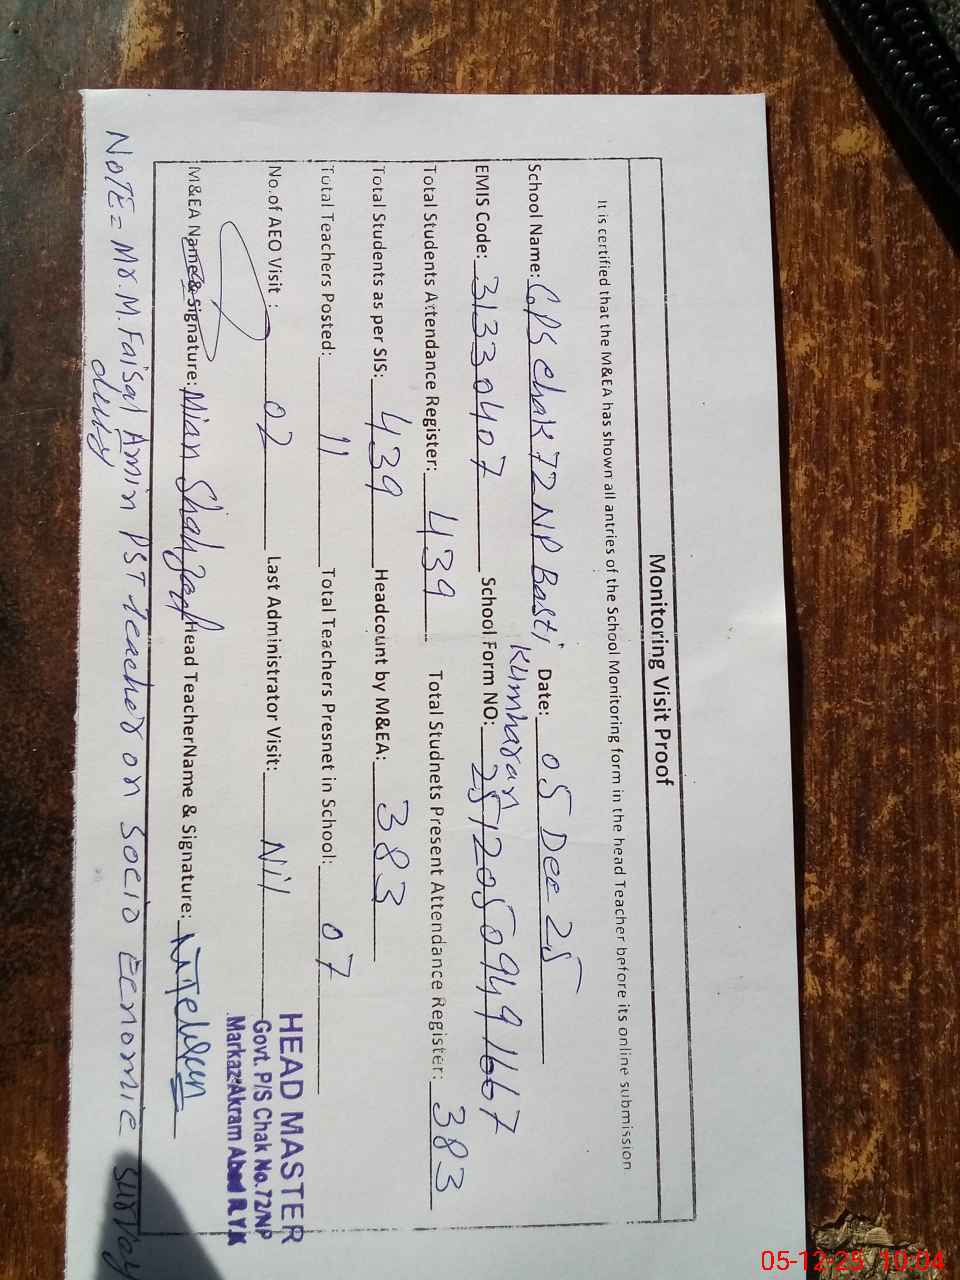 Monitoring Visit Proof
It is certified that the M&EA has shown all antries of the School Monitoring form in the head Teacher before its online submission
School Name: GPS Chak 72 NP Basti Kumharan Date: 05 Dec 25
EMIS Code: 31330407 School Form NO: 25120509491667
Total Students Attendance Register: 439 Total Studnets Present Attendance Register: 383
Total Students as per SIS: 439 Headcount by M&EA: 383
Total Teachers Posted: 11 Total Teachers Presnet in School: 07
No.of AEO Visit : 02 Last Administrator Visit: Nil
M&EA Name & signature: Mian Shahzad Head TeacherName & Signature:
HEAD MASTER
Govt. P/S Chak No.72/NP
Markaz Akram Abad R.Y.K
NOTE = Mr. M. Faisal Amin PST Teacher on Socio Ecnomic survay
duty
05-12-25 10:04